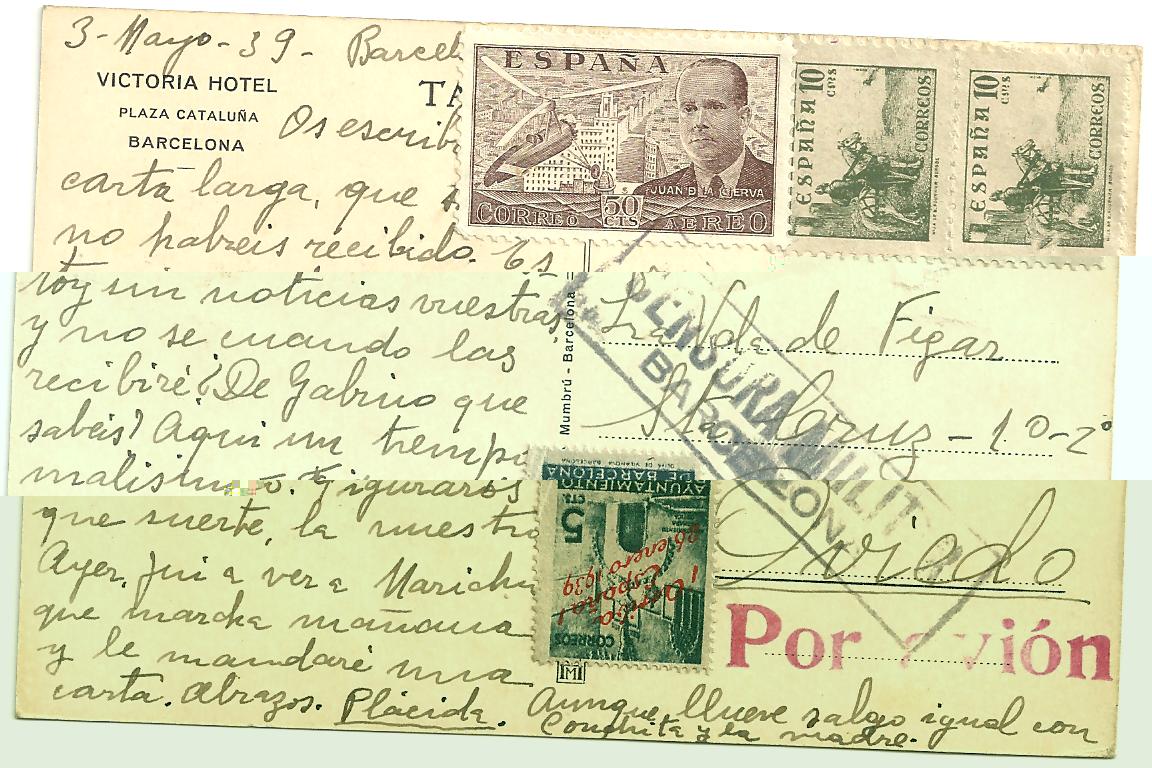 3 - Mayo - 39 - Barcel
VICTORIA HOTEL
PLAZA CATALUÑA
BARCELONA
TA
Os escrib
carta larga, que
no habreis recibido. Es
toy sin noticias vuestras,
y no se cuando las
recibiré. ¿De Gabino que
sabéis? Aqui un tiempo
malisimo. Figuraros
que suerte, la nuestra
Ayer fui a ver a Marichu
que marcha mañana
y le mandaré una
carta. Abrazos. Plácida.
Aunque llueve salgo igual con
Conchita y la madre.
ESPAÑA
JUAN DE LA CIERVA
50 CTS
CORREO AEREO
ESPAÑA 10 CMS
CORREOS
ESPAÑA 10 CMS
CORREOS
Mumbrú - Barcelona
Sra Vda de Figar
Sta Cruz - 1 0 - 2º
Oviedo
CENSURA MILITAR
BARCELONA
AYUNTAMIENTO DE BARCELONA
5 CTS
26 enero 1939
España!
CORREOS
Por avión